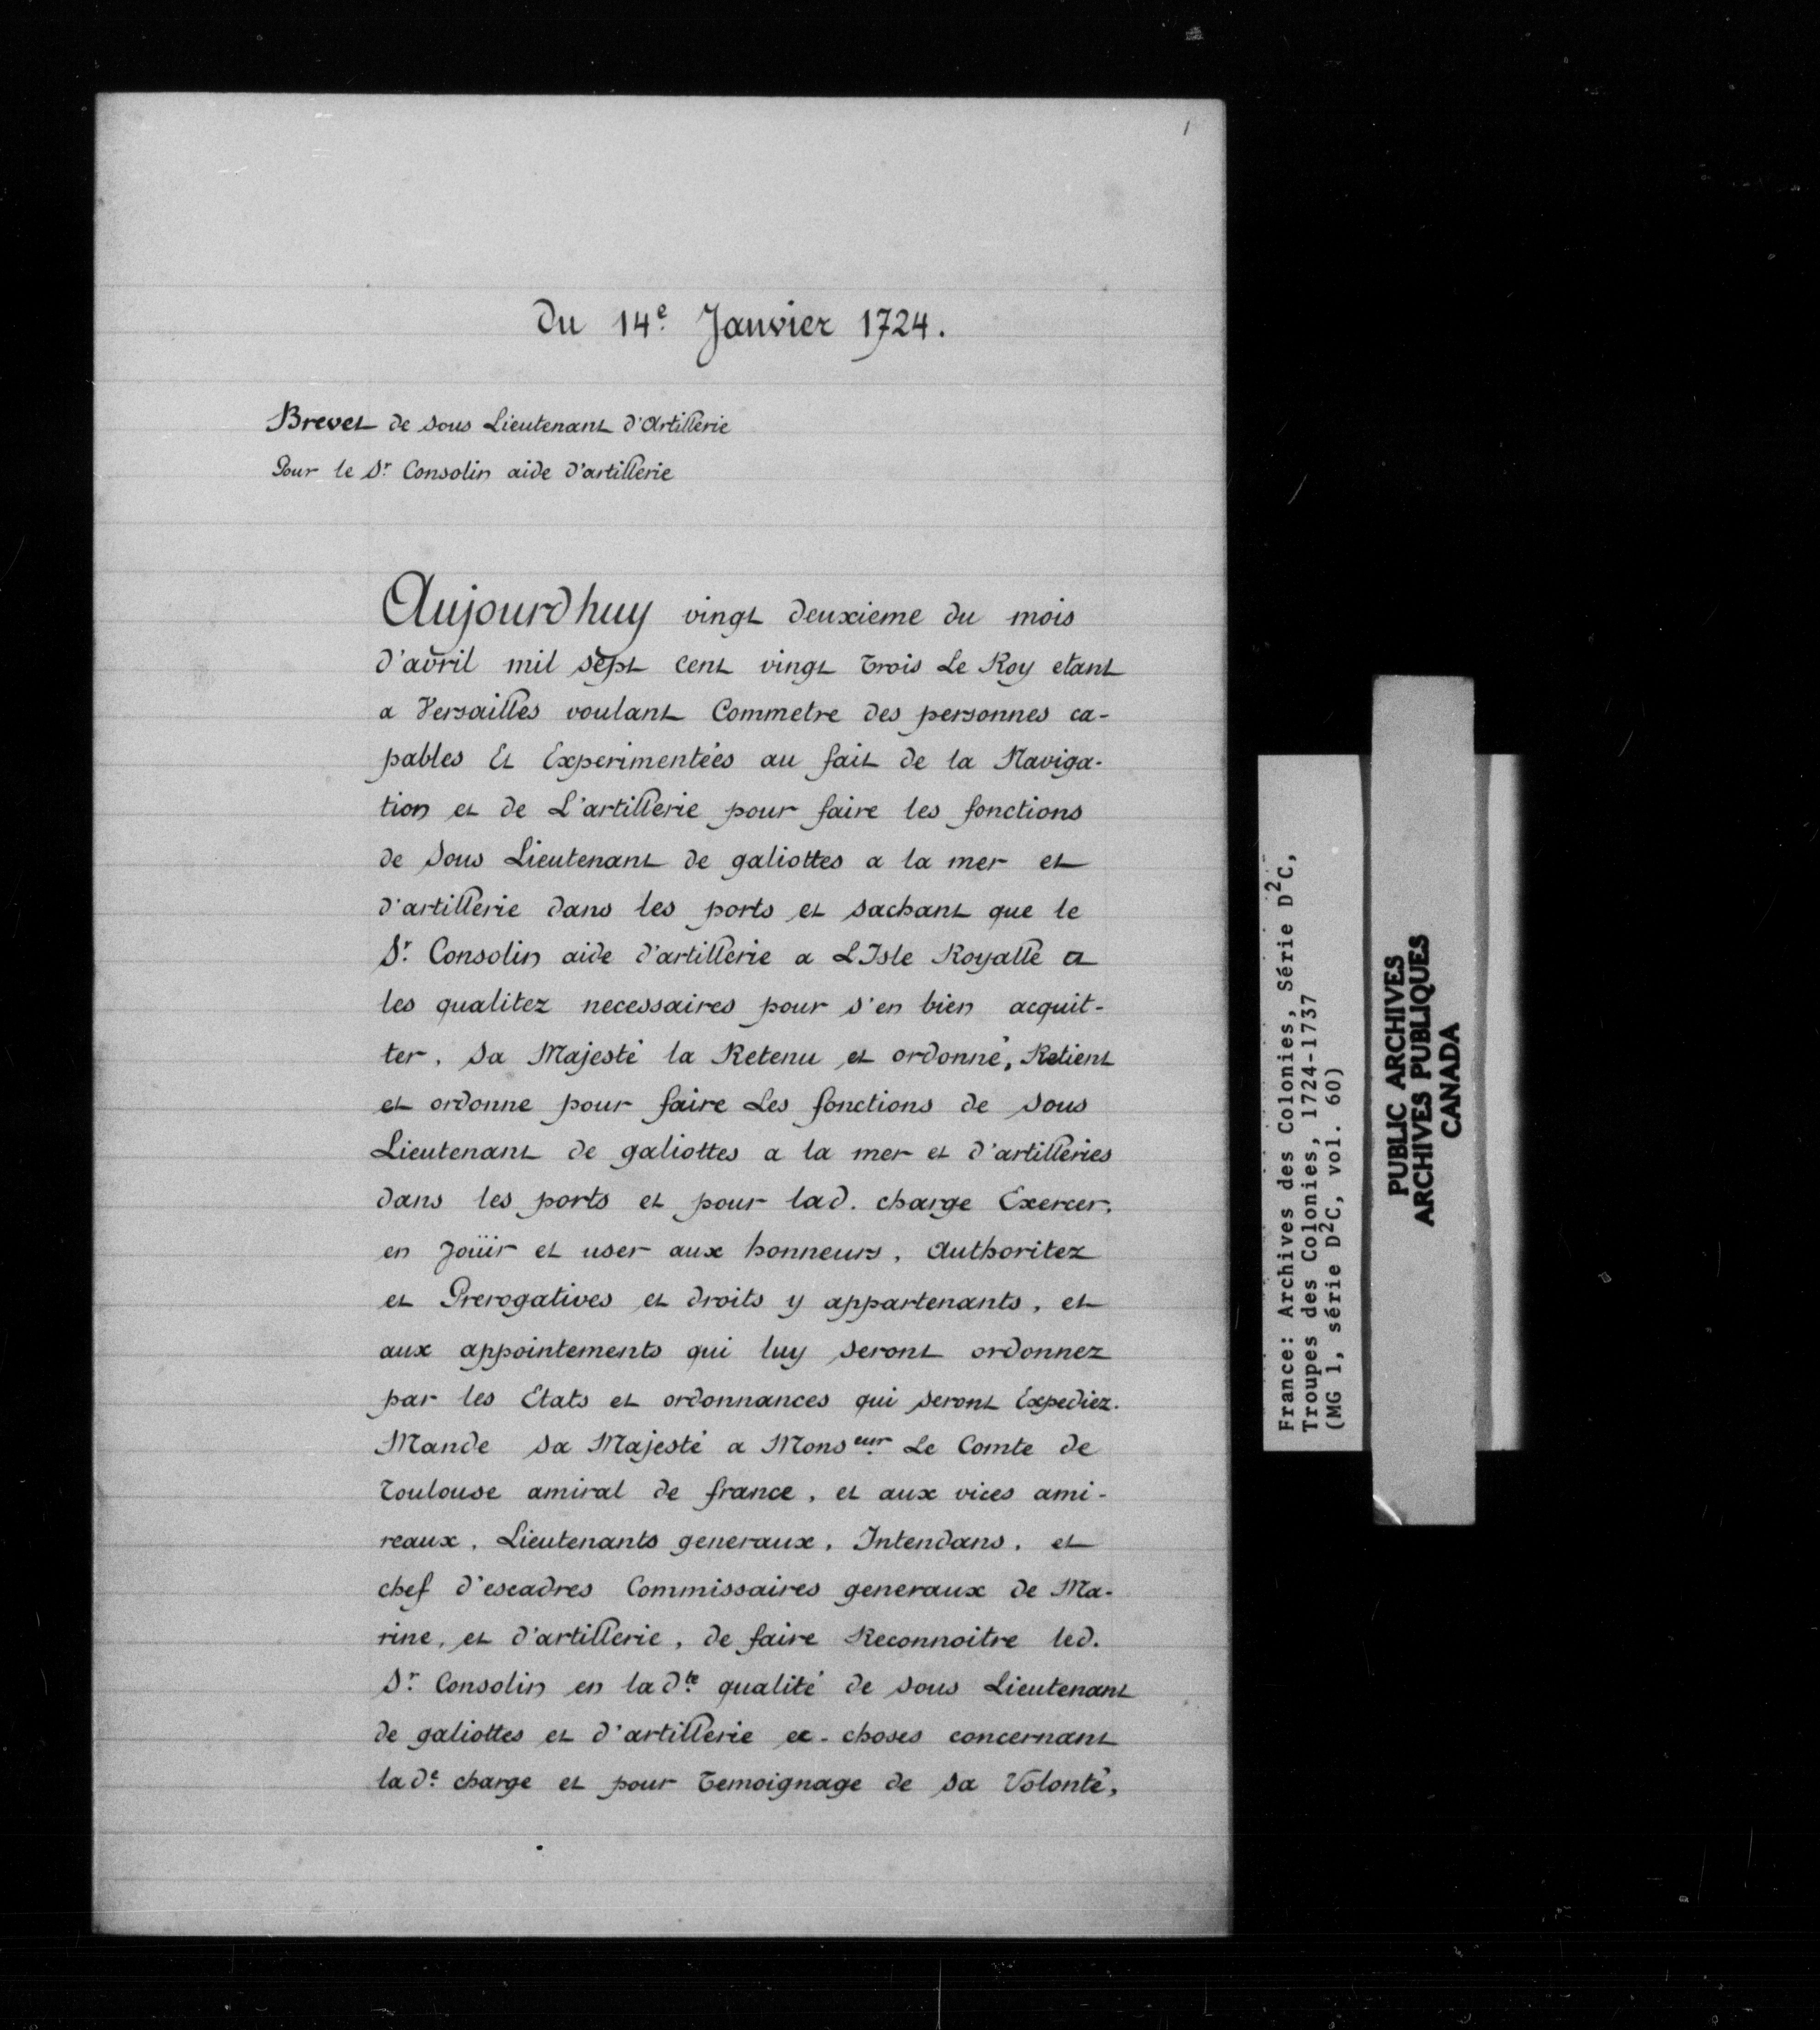 1
Du 14e. Janvier 1724.
Brevet de sous Lieutenant d'Artillerie
Pour le Sr. Consolin aide d'artillerie
Aujourd huy vingt deuxieme du mois
d'avril mil sept cent vingt trois Le Roy etant
a Versailles voulant Commetre des personnes ca-
pables Et Experimentées au fait de la Naviga-
tion et de L'artillerie pour faire les fonctions
de sous Lieutenant de galiottes a la mer et
d'artillerie dans les ports et sachant que le
Sr. Consolin aide d'artillerie a L'Isle Royalle a
les qualitez necessaires pour s'en bien acquit-
ter, Sa Majesté la Retenu et ordonné, Retient
et ordonne pour faire Les fonctions de sous
Lieutenant de galiottes a la mer et d'artilleries
dans les ports et pour lad. charge Exercer,
en Joüir et user aux honneurs, Authoritez
et Prerogatives et droits y appartenants, et
aux appointements qui luy seront ordonnez
par les Etats et ordonnances qui seront Expediez.
Mande Sa Majesté a Monseur Le Comte de
Toulouse amiral de france, et aux vices ami-
reaux, Lieutenants generaux, Intendans, et
chef d'escadres Commissaires generaux de Ma-
rine, et d'artillerie, de faire Reconnoitre led.
Sr. Consolin en ladte qualité de sous Lieutenant
de galiottes et d'artillerie ec - choses concernant
lade. charge et pour Temoignage de sa Volonté,
France: Archives des Colonies, Série D2C,
Troupes des Colonies, 1724-1737
(MG 1, série D2C, vol. 60)
PUBLIC ARCHIVES
ARCHIVES PUBLIQUES
CANADA